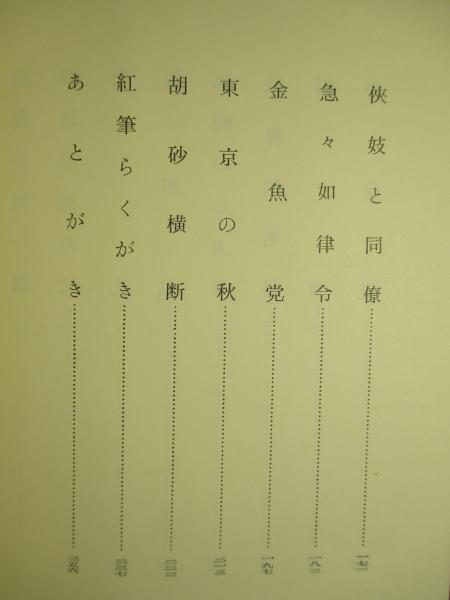 侠妓と同僚……一七一
急々如律令……一八二
金魚党……一九七
東京の秋……二一三
胡砂横断……二二二
紅筆らくがき……二三七
あとがき……二五六